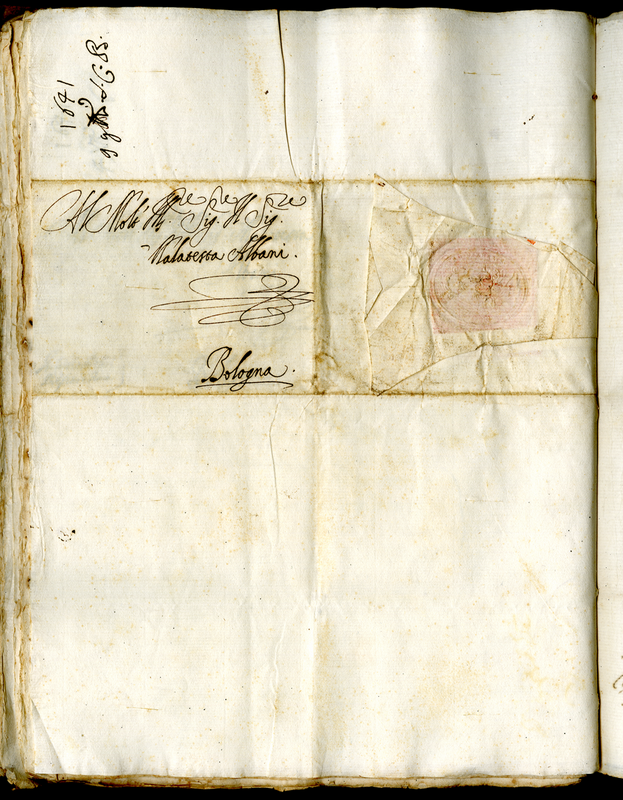 1641
Al Molto Ill.re Sig.re Il Sig.re
Malatesta Albani.
Bologna.